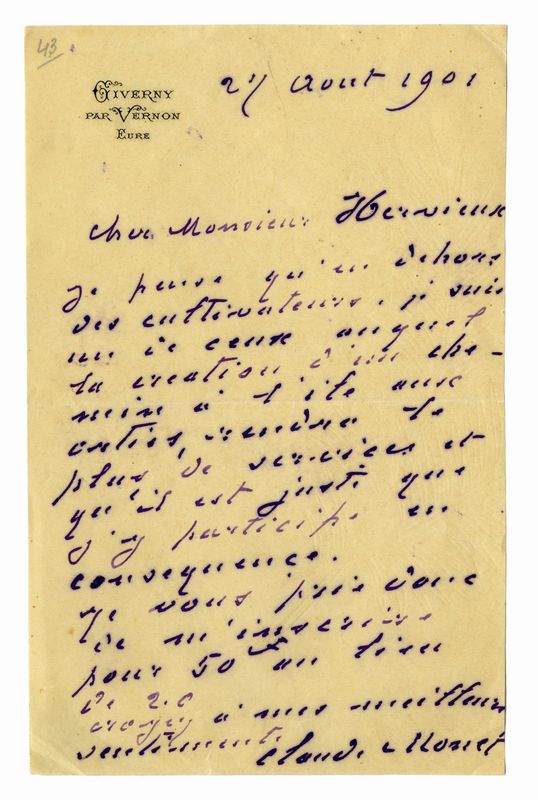 43
GIVERNY
PAR VERNON
EURE
27 Aout 1901
Cher Monsieur Hervieux
Je pense qu'en dehors
des cultivateurs, je suis
un de ceux auquel
la creation d'un che-
min à l'ile aux
orties, rendra le
plus de services et
qu'il est juste que
j'y participe en
consequence.
Je vous prie donc
de m'inscrire
pour 50 f au lieu
de 20
croyez à mes meilleurs
sentiments
Claude Monet